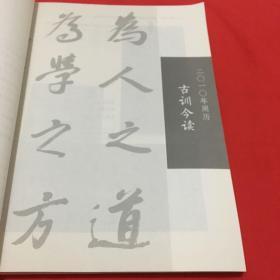 為人之道
為學之方
二〇一〇年周历
古训今读